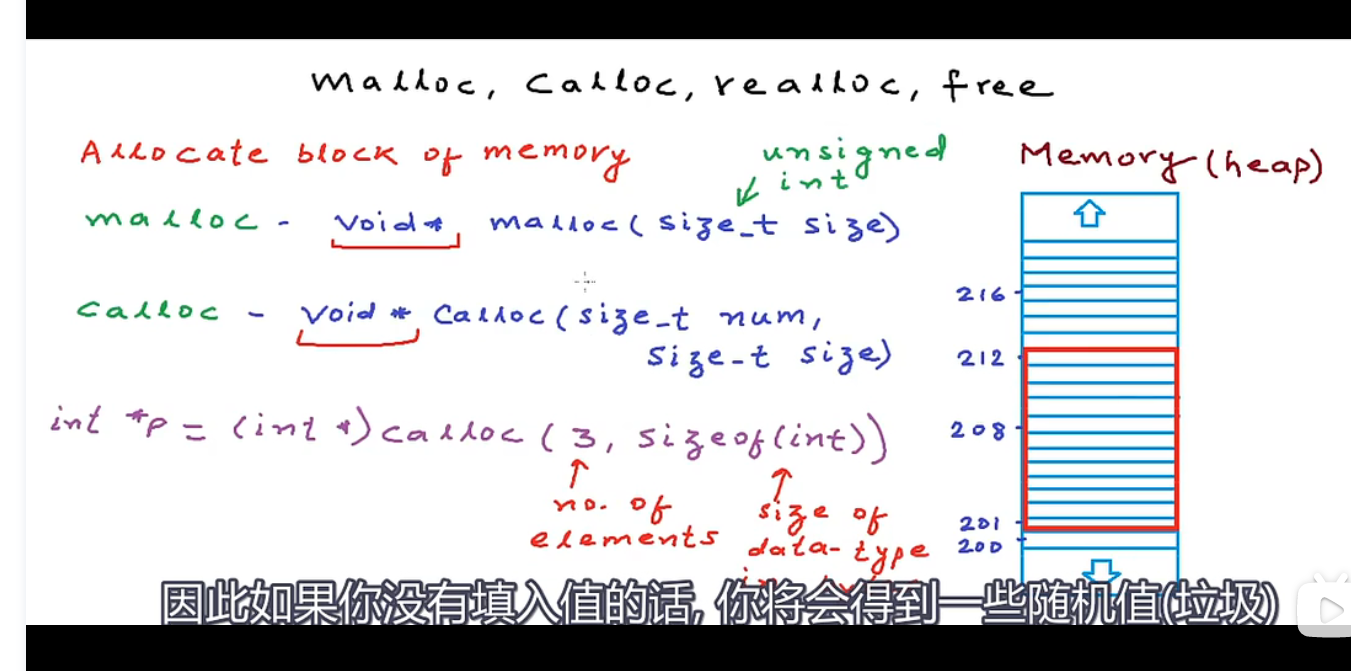 malloc, calloc, realloc, free
Allocate block of memory
unsigned
int
Memory (heap)
malloc - void* malloc(size_t size)
216
calloc - void * calloc(size_t num,
size_t size)
212
int *p = (int *)calloc(3, sizeof(int))
208
no. of
elements
size of
data-type
201
200
因此如果你没有填入值的话, 你将会得到一些随机值(垃圾)